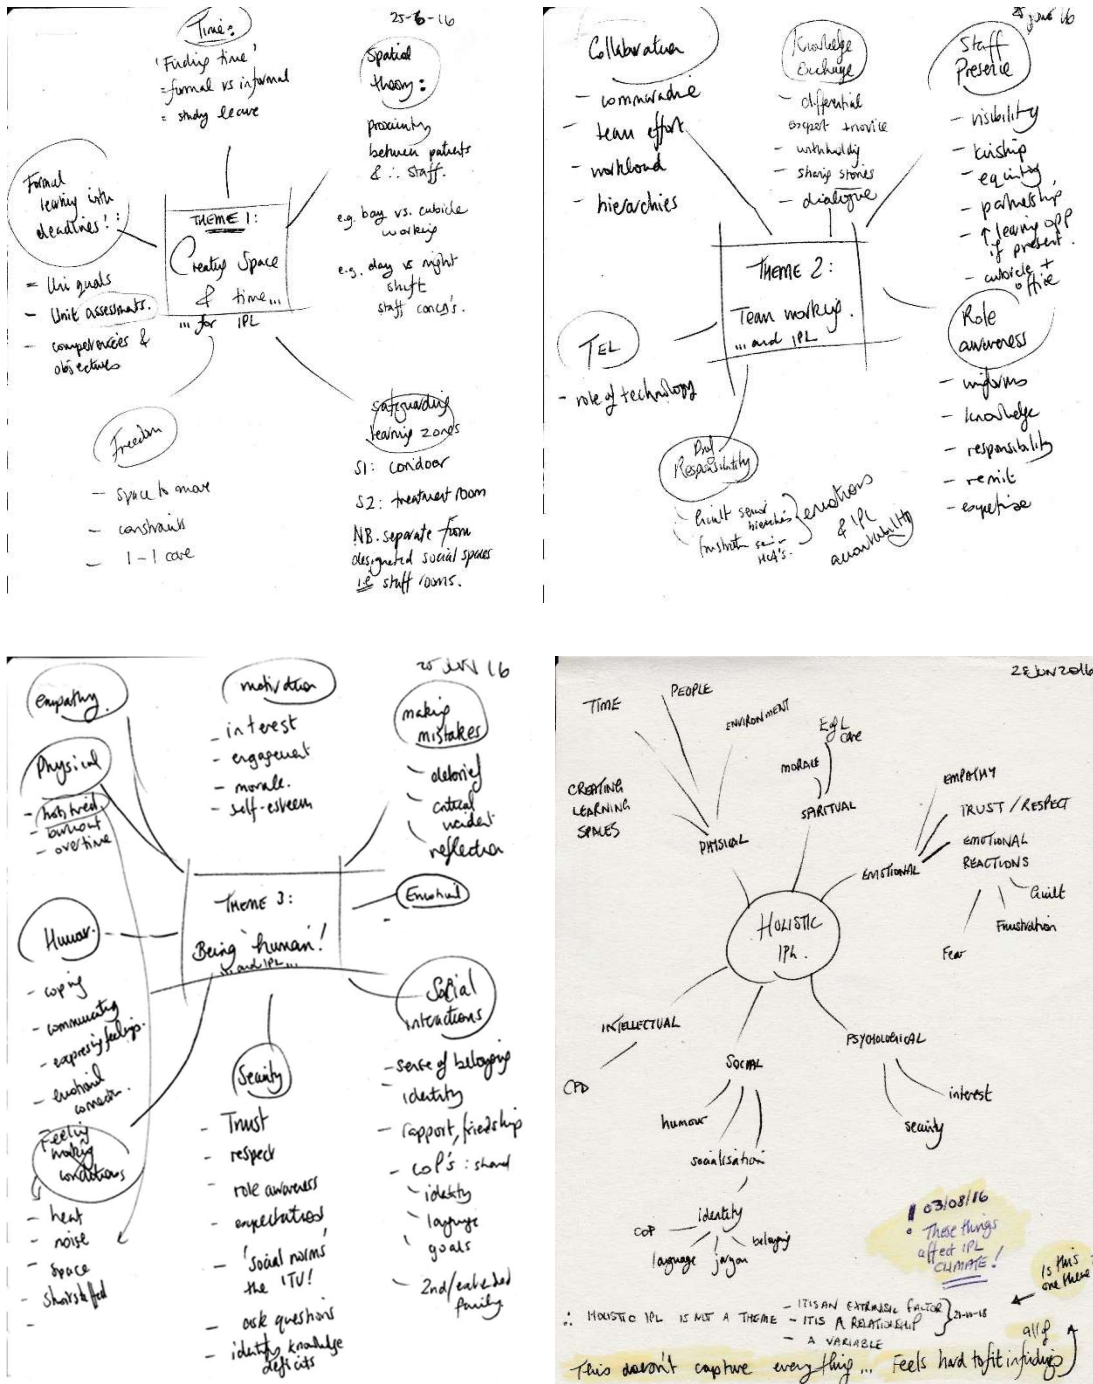 25-6-16
Time:
'Finding time'
= formal vs informal
= study leave
Spatial
theory:
proximity
between patients
& ∴ staff.
e.g. bay vs. cubicle
working
e.g. day vs night
shift
staff
Formal
learning with
deadlines!
= Uni quals
- Unit assessments.
- competencies &
objectives
THEME 1:
Creating Space
& time...
... for IPL
Freedom
- space to move
- constraints
- 1-1 care
Safeguarding
learning zones
S1: coridoor
S2: treatment room
NB. separate from
designated social spaces
i.e staff rooms.
25 June 16
Collaboration
- commaradie
- team effort
- workload
- hierarchies
Knowledge
Exchange
- differential
expert + novice
- withholding
- sharing stories
- dialogue
Staff
Presence
- visibility
- kinship
- equity
- partnership
- ↑ learning opp
if present.
- cubicle +
office
THEME 2:
Team working.
... and IPL
TEL
- role of technology
Role
awareness
- uniforms
- knowledge
- responsibility
- remit
- expertise
Responsibility
- Guilt senior
- frustration
HCA's.
emotions
& IPL
accountability
25 JUN 16
empathy
Physical
- hot/tired
- burnout
- overtime
motivation
- interest
- engagement
- morale.
- self-esteem
making
mistakes
- debrief
- critical
incident
- reflection
THEME 3:
Being 'human'!
... and IPL...
Emotional
Humor.
- coping
- communicating
- expressing feelings.
- emotional
connection.
Feeling
working
conditions
- heat
- noise
- space
- Short staffed
-
Security
- Trust
- respect
- role awareness
- expectations
- 'social norms'
the ITU!
- ask questions
- identity knowledge
deficits
Social
interactions
- sense of belonging
- identity
- rapport/friendship
- CoP's: shared
- identity
- language
- goals
- 2nd/extended
family
25 JUN 2016
TIME
PEOPLE
ENVIRONMENT
EofL
care
MORALE
CREATING
LEARNING
SPACES
PHYSICAL
SPIRITUAL
EMPATHY
TRUST / RESPECT
EMOTIONAL
EMOTIONAL
REACTIONS
Guilt
Frustration
Fear
HOLISTIC
IPL.
INTELLECTUAL
CPD
SOCIAL
humour
socialisation
identity
CoP
language
jargon
belonging
PSYCHOLOGICAL
interest
security
! 03/08/16
These things
affect IPL
CLIMATE!
Is this
one theme?
∴ HOLISTIC IPL IS NOT A THEME
- IT IS AN EXTRINSIC FACTOR
- IT IS A RELATIONSHIP
- A VARIABLE
This doesn't capture everything... Feels hard to fit all of findings